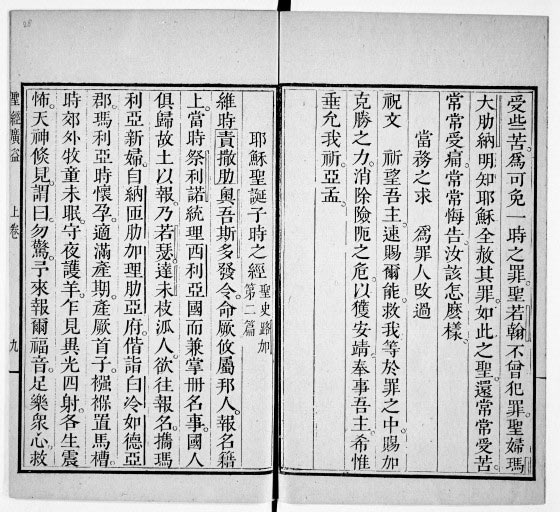 受些苦。爲可免一時之罪。聖若翰不曾犯罪。聖婦瑪
大肋納明知耶穌全赦其罪。如此之聖。還常常受苦。
常常受痛。常常悔告。汝該怎麼樣。
當務之求　爲罪人改過
祝文　祈望吾主。速賜爾能。救我等於罪之中。賜加
克勝之力。消除險阨之危。以獲安靖。奉事吾主。希惟
垂允我祈。亞孟。
耶穌聖誕子時之經 聖史路加第二篇
維時責撒肋奧吾斯多發令。命厥攸屬邦人。報名籍
上。當時祭利諾統理西利亞國而兼掌冊名事。國人
俱歸故土以報。乃若瑟。達未枝派人。欲往報名。攜瑪
利亞新婦。自納匝肋加理肋亞府。偕詣白冷如德亞
郡。瑪利亞時懷孕。適滿產期。產厥首子。襁褓置馬槽。
時郊外牧童未眠。守夜護羊。乍見異光四射。各生震
怖。天神倐見。謂曰。勿驚。予來報爾福音。足樂衆心。救
聖經廣益　上卷　九
28